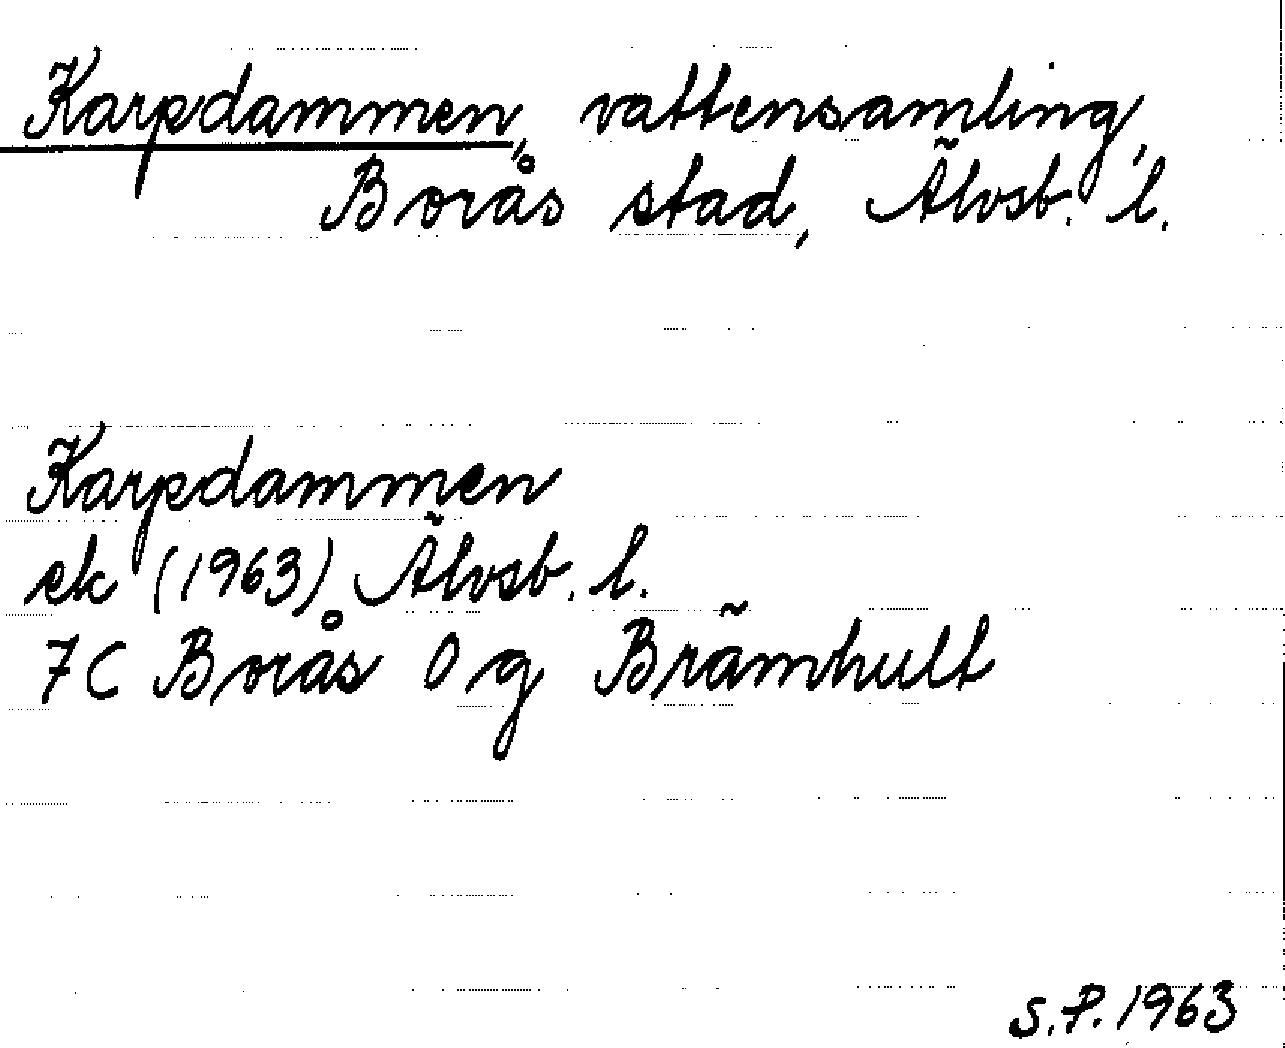 Karpdammen, vattensamling,
Borås stad, Älvsb. l.
Karpdammen
ek (1963) Älvsb. l.
7C Borås 0 g Brämhult
S.P. 1963